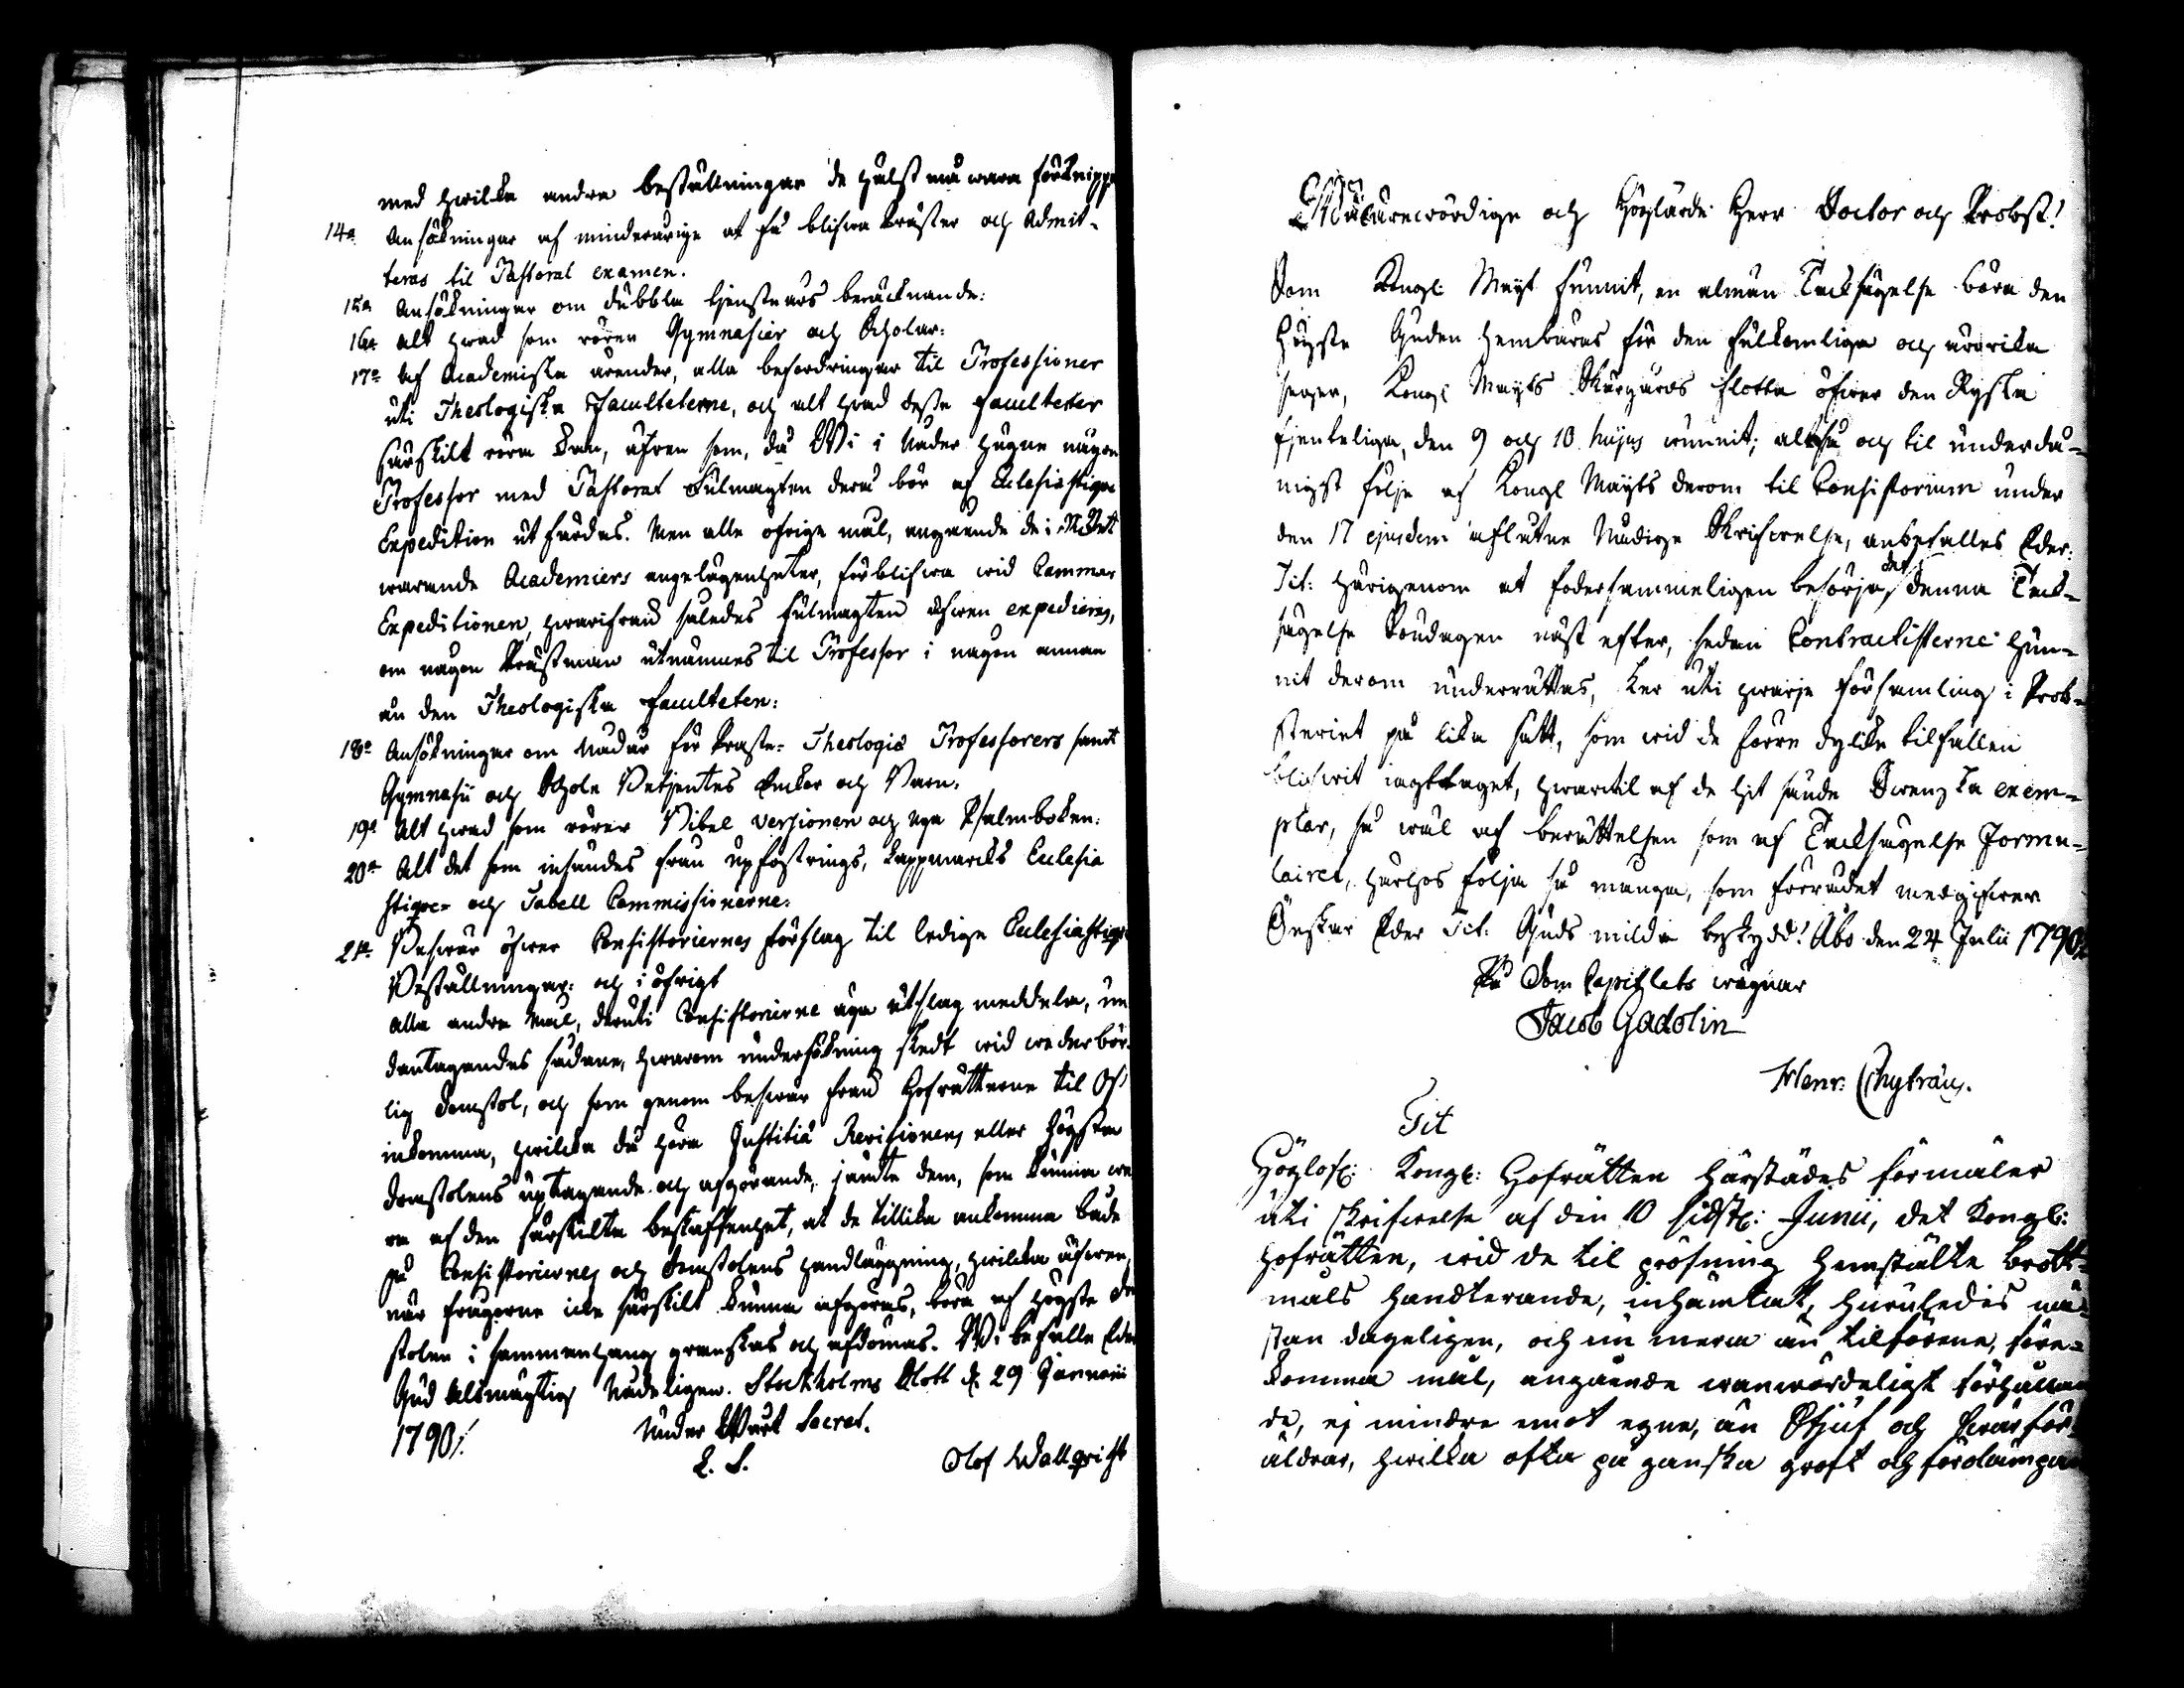 med hwilka andra beställningar de hälst må wara förknippa
14o Ansökningar af minderårige at få blifwa Präster och Admit-
teras til Pastoral examen.
15o Ansökningar om dubbla tjenste års beräcknande:
16o Alt hwad som rörer Gymnasier och Scholar:
17o Af Academiska ärender, alla befordringar til Professioner
uti Theologiska Faculteterne, och alt hwad desse Faculteter
särskilt röra kan, äfwen som, då Wi i Nåder hugne någon
Professor med Pastorat Fulmagten derå bör af Eclesiastique
Expedition utfärdas. Men alle öfrige mål, angående de i Riket
warande Academiers angelägenheter, förblifwa wid Cammar
Expeditionen, hwarifrån således fulmagten äfwen expedieres,
om någon Prästman utnämnes til Professor i någon annan
än den Theologiska Faculteten:
18o Ansökningar om Nådår för Präste- Theologiæ Professorers samt
Gymnasii och Schole Betjentes Enkor och Barn.
19o Alt hwad som rörer Bibel versionen och nya Psalmboken:
20o Alt det som insändes från upfostrings, Lappmarcks Eclesia
stique- och Tabell Commissionerne.
21o Beswär öfwer Consistoriernes förslag til ledige Eclesiastique
Beställningar: och i öfrigt
alla andra mål, deruti Consistorierne äga utslag meddela, un
dantagandes sådane, hwarom undersökning skedt wid wederbör-
lig Domstol, och som genom beswär från Hofrätterne til Oss
inkomma, hwilka då höra Justitiæ Revisionens eller Högsta
Domstolens uptagande och afgörande, jämte dem, som kunna wa
ra af den särskilta beskaffenhet, at de tillika ankomma både
på Consistoriernes och Domstolens handläggning, hwilka äfwen,
när frågorne icke särskilt kunna afgöras, böra af Högste Dom
stolen i sammanhang granskas och afdömas. Wi befalle Eder
Gud Alsmägtig Nådeligen. Stockholms Slott d. 29 Januarii
1790/.
Under Wårt Secret.
L. S.
Olof Wallqvist
Målärewördige och Höglärde Herr Doctor och Probst!
Som Kongl. Mayt funnit, en alman Tacksägelse böra den
Högste Guden hembäras för den fulkomliga och ärorika
seger, Kongl Mayts Skärgårds flotta öfwer den Ryska
fjenteliga, den 9 och 10 hujus wunnit; altså och til underdå-
nigst följe af Kongl Mayts derom til Consistorium under
den 17 ejusdem aflåtne Nådige Skrifwelse, anbefalles Eder:
Tit: härigenom at fodersammeligen besörja, det denna Tack-
sägelse Söndagen näst efter, sedan Contractisterne hun-
nit derom underrättas, sker uti hwarje församling i Prob-
steriet på lika sätt, som wid de förre dylike tilfällen
blifwit iagttaget, hwartil af de hit sände Swenska exem-
plar, så wäl af berättelsen som af Tacksägelse Formu-
lairet, härhos följa så många, som förrådet medgifwer
Önskar Eder Tit: Guds milda beskydd! Åbo den 24 Julii 1790/.
På Dom Capitlets wägnar
Jacob Gadolin
Henr: Chytræus.
Tit
Höglofl: Kongl: Hofrätten härstädes förmäler
uti skrifwelse af den 10 sidstl: Junii, det Kongl:
Hofrätten, wid de til pröfning hemstälte brott-
måls handterande, inhämtat, huruledes nä-
stan dageligen, och nu mera än tilförene, före-
komma mål, angående wanwördeligt förhållan
de, ej mindre emot egne, än Stjuf och Swärför-
äldrar, hwilka ofta på ganska groft och förolämpan